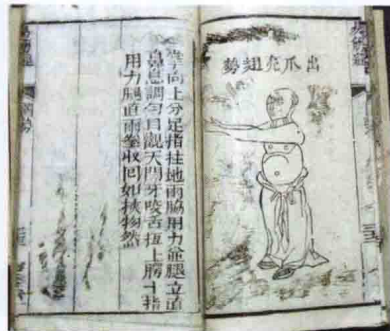 出爪亮翅勢
掌向上分足指拄地兩脇用力並腿立直
鼻息調勻目觀天門牙咬舌抵上腭十指
用力腿直兩拳收回如挾物然